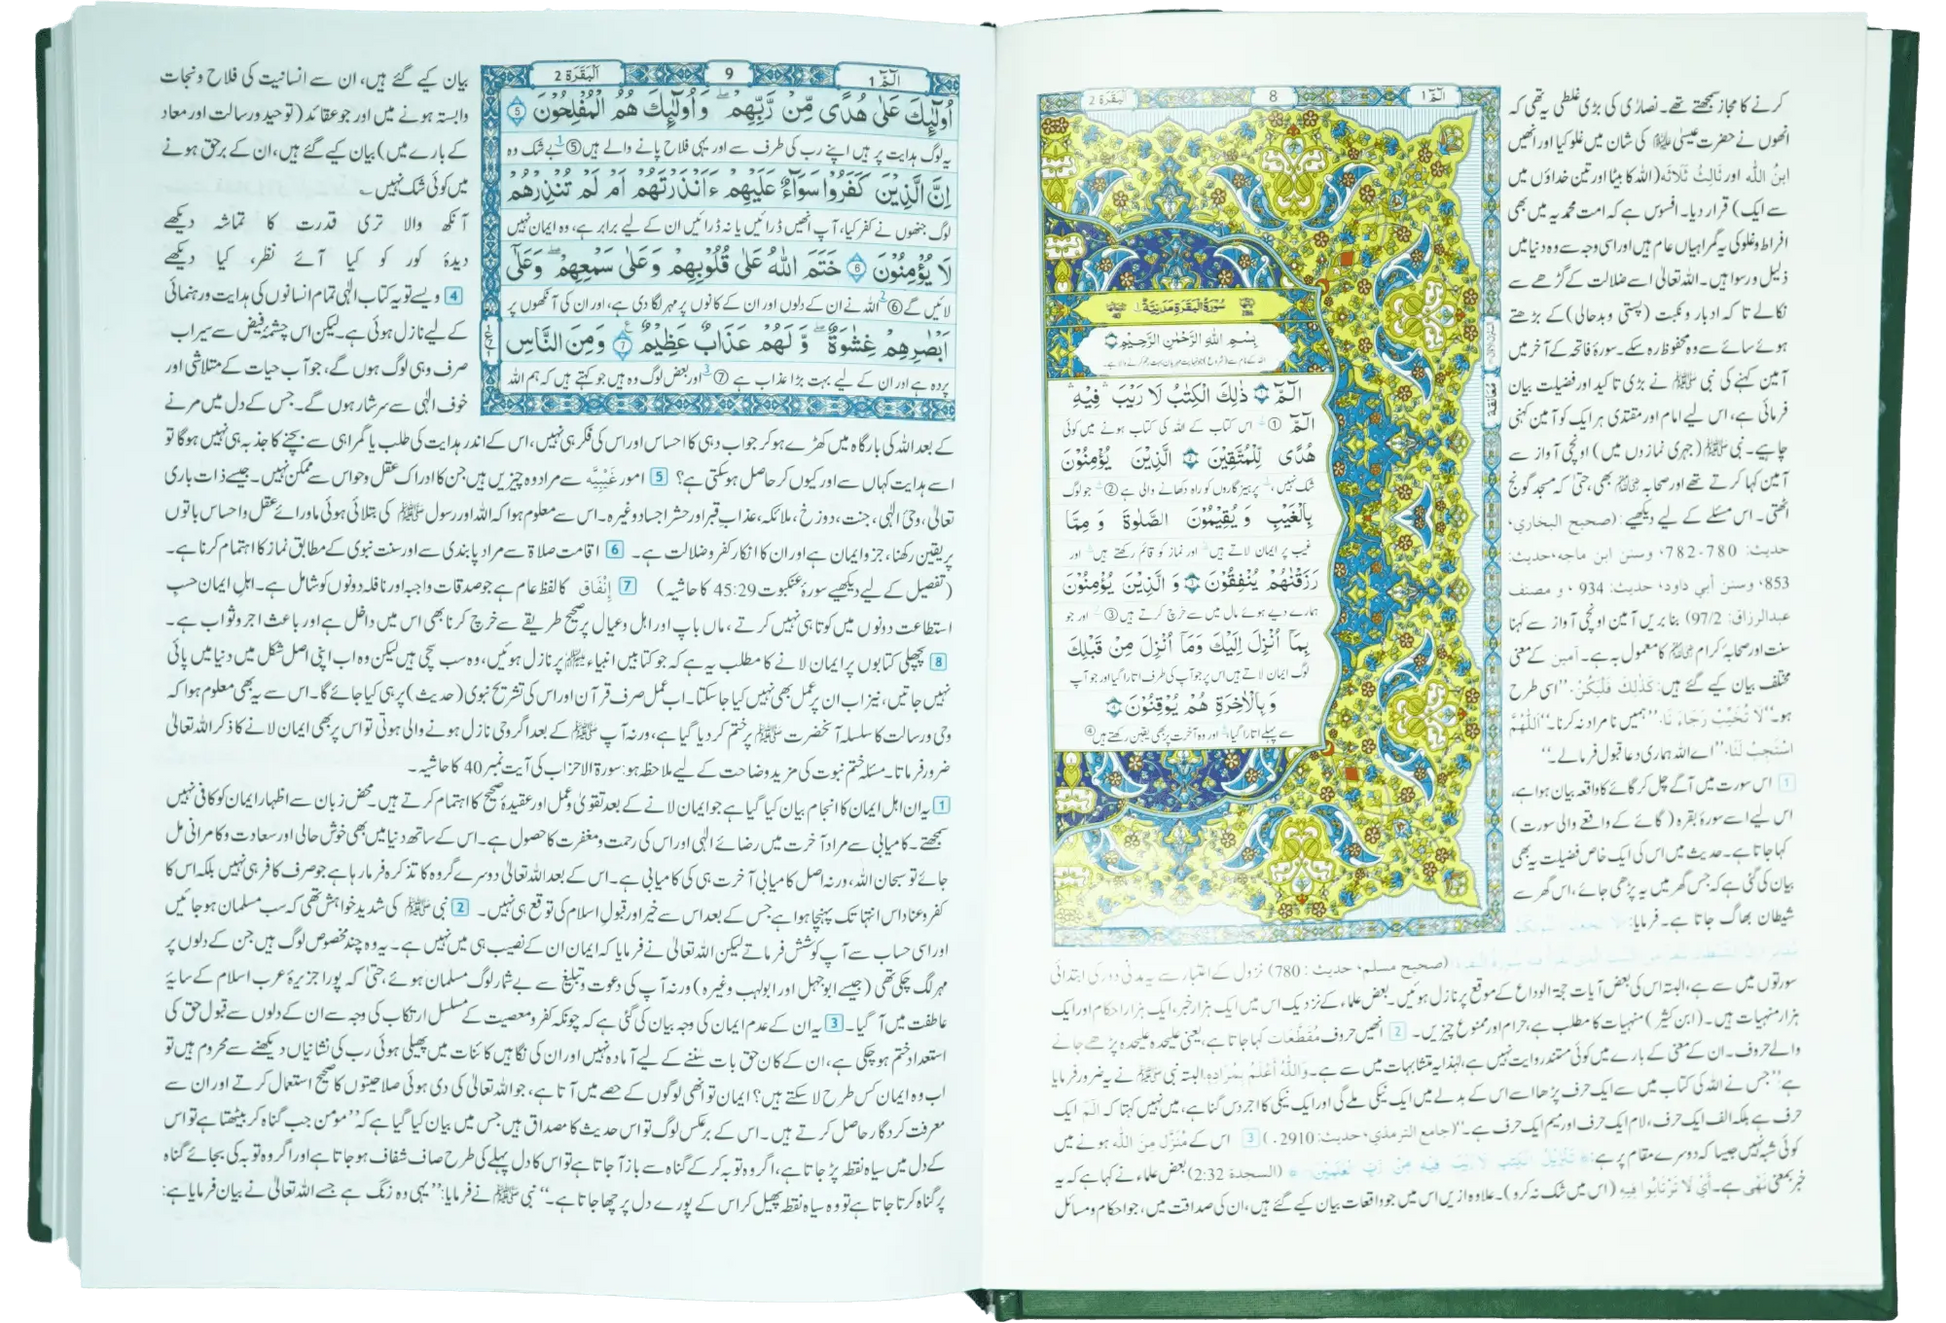 البقرة 2
8
الٓمّٓ 1
سُوۡرَةُ الۡبَقَرَةِ مَدَنِيَّةٌ
بِسۡمِ اللهِ الرَّحۡمٰنِ الرَّحِيۡمِ
الٓمّٓ ذٰلِكَ الۡكِتٰبُ لَا رَيۡبَ فِيۡهِ
الٓمّٓ ① اس کتاب کے اللہ کی کتاب ہونے میں کوئی
هُدًى لِّلۡمُتَّقِيۡنَ الَّذِيۡنَ يُؤۡمِنُوۡنَ
شک نہیں، پرہیزگاروں کو راہ دکھانے والی ہے ② جو لوگ
بِالۡغَيۡبِ وَيُقِيۡمُوۡنَ الصَّلٰوةَ وَمِمَّا
غیب پر ایمان لاتے ہیں اور نماز کو قائم رکھتے ہیں اور
رَزَقۡنٰهُمۡ يُنۡفِقُوۡنَ وَالَّذِيۡنَ يُؤۡمِنُوۡنَ
ہمارے دیے ہوئے مال میں سے خرچ کرتے ہیں ③ اور جو
بِمَاۤ اُنۡزِلَ اِلَيۡكَ وَمَاۤ اُنۡزِلَ مِنۡ قَبۡلِكَ
لوگ ایمان لاتے ہیں اس پر جو آپ کی طرف اتارا گیا اور جو آپ
وَبِالۡاٰخِرَةِ هُمۡ يُوۡقِنُوۡنَ
سے پہلے اتارا گیا اور وہ آخرت پر بھی یقین رکھتے ہیں
کرنے کا مجاز سمجھتے تھے۔ نصاریٰ کی بڑی غلطی یہ تھی کہ
انھوں نے حضرت عیسیٰ کی شان میں غلو کیا اور انھیں
ابنُ اللّٰه اور ثَالِثُ ثَلَاثَہ (اللہ کا بیٹا اور تین خداؤں میں
سے ایک) قرار دیا۔ افسوس ہے کہ امت محمدیہ میں بھی
افراط و غلو کی یہ گمراہیاں عام ہیں اور اسی وجہ سے وہ دنیا میں
ذلیل و رسوا ہیں۔ اللہ تعالیٰ اسے ضلالت کے گڑھے سے
نکالے تاکہ ادبار و نکبت (پستی و بدحالی) کے بڑھتے
ہوئے سائے سے وہ محفوظ رہ سکے۔ سورۂ فاتحہ کے آخر میں
آمین کہنے کی نبی ﷺ نے بڑی تاکید اور فضیلت بیان
فرمائی ہے، اس لیے امام اور مقتدی ہر ایک کو آمین کہنی
چاہیے۔ نبی ﷺ (جہری نمازوں میں) اونچی آواز سے
آمین کہا کرتے تھے اور صحابہ بھی، حتیٰ کہ مسجد گونج
اٹھتی۔ اس مسئلے کے لیے دیکھیے: (صحیح البخاري،
حدیث: 780-782، وسنن ابن ماجه، حدیث:
853، وسنن أبي داود، حدیث: 934، و مصنف
عبدالرزاق: 97/2) بنا بریں آمین اونچی آواز سے کہنا
سنت اور صحابۂ کرام کا معمول بہ ہے۔ آمین کے معنی
مختلف بیان کیے گئے ہیں: كَذٰلِكَ فَلْيَكُنْ، ”اسی طرح
ہو۔“ لَا تُخَيِّبْ رَجَاءَنَا، ”ہمیں نامراد نہ کرنا۔“ اَللّٰهُمَّ
اسْتَجِبْ لَنَا، ”اے اللہ ہماری دعا قبول فرما لے۔“
1 اس سورت میں آگے چل کر گائے کا واقعہ بیان ہوا ہے،
اس لیے اسے سورۂ بقرہ (گائے کے واقعے والی سورت)
کہا جاتا ہے۔ حدیث میں اس کی ایک خاص فضیلت یہ بھی
بیان کی گئی ہے کہ جس گھر میں یہ پڑھی جائے، اس گھر سے
شیطان بھاگ جاتا ہے۔ فرمایا:
(صحیح مسلم، حدیث: 780) نزول کے اعتبار سے یہ مدنی دور کی ابتدائی
سورتوں میں سے ہے، البتہ اس کی بعض آیات حجۃ الوداع کے موقع پر نازل ہوئیں۔ بعض علماء کے نزدیک اس میں ایک ہزار خبر، ایک ہزار احکام اور ایک
ہزار منہیات ہیں۔ (ابن کثیر) منہیات کا مطلب ہے، حرام اور ممنوع چیزیں۔ 2 انھیں حروف مُقَطَّعَات کہا جاتا ہے، یعنی علیحدہ علیحدہ پڑھے جانے
والے حروف۔ ان کے معنی کے بارے میں کوئی مستند روایت نہیں ہے، لہٰذا یہ متشابہات میں سے ہے۔ وَاللّٰهُ أَعْلَمُ بِمُرَادِهِ، البتہ نبی ﷺ نے یہ ضرور فرمایا
ہے ”جس نے اللہ کی کتاب میں سے ایک حرف پڑھا اسے اس کے بدلے میں ایک نیکی ملے گی اور ایک نیکی کا اجر دس گنا ہے، میں نہیں کہتا کہ الٓمّٓ ایک
حرف ہے بلکہ الف ایک حرف، لام ایک حرف اور میم ایک حرف ہے۔“ (جامع الترمذي، حدیث: 2910.) 3 اس کے مُنَزَّل مِنَ اللّٰه ہونے میں
کوئی شبہ نہیں جیسا کہ دوسرے مقام پر ہے: تَنْزِيْلُ الْكِتٰبِ لَا رَيْبَ فِيْهِ مِنْ رَّبِّ الْعٰلَمِيْنَ (السجدة 2:32) بعض علماء نے کہا ہے کہ یہ
خبر بمعنی نَهْی ہے۔ أَيْ لَا تَرْتَابُوا فِيهِ (اس میں شک نہ کرو)۔ علاوہ ازیں اس میں جو واقعات بیان کیے گئے ہیں، ان کی صداقت میں، جو احکام و مسائل
البقرة 2
9
الٓمّٓ 1
اُولٰٓئِكَ عَلٰى هُدًى مِّنۡ رَّبِّهِمۡ وَاُولٰٓئِكَ هُمُ الۡمُفۡلِحُوۡنَ 5
یہ لوگ ہدایت پر ہیں اپنے رب کی طرف سے اور یہی فلاح پانے والے ہیں ⑤ بے شک وہ
اِنَّ الَّذِيۡنَ كَفَرُوۡا سَوَآءٌ عَلَيۡهِمۡ ءَاَنۡذَرۡتَهُمۡ اَمۡ لَمۡ تُنۡذِرۡهُمۡ
لوگ جنھوں نے کفر کیا، آپ انھیں ڈرائیں یا نہ ڈرائیں ان کے لیے برابر ہے، وہ ایمان نہیں
لَا يُؤۡمِنُوۡنَ 6 خَتَمَ اللهُ عَلٰى قُلُوۡبِهِمۡ وَعَلٰى سَمۡعِهِمۡ وَعَلٰٓى
لائیں گے ⑥ اللہ نے ان کے دلوں اور ان کے کانوں پر مہر لگا دی ہے، اور ان کی آنکھوں پر
اَبۡصٰرِهِمۡ غِشٰوَةٌ وَّلَهُمۡ عَذَابٌ عَظِيۡمٌ 7 وَمِنَ النَّاسِ
پردہ ہے اور ان کے لیے بہت بڑا عذاب ہے ⑦ اور بعض لوگ وہ ہیں جو کہتے ہیں کہ ہم اللہ
بیان کیے گئے ہیں، ان سے انسانیت کی فلاح و نجات
وابستہ ہونے میں اور جو عقائد (توحید و رسالت اور معاد
کے بارے میں) بیان کیے گئے ہیں، ان کے برحق ہونے
میں کوئی شک نہیں۔
آنکھ والا تری قدرت کا تماشہ دیکھے
دیدۂ کور کو کیا آئے نظر، کیا دیکھے
4 ویسے تو یہ کتاب الٰہی تمام انسانوں کی ہدایت و رہنمائی
کے لیے نازل ہوئی ہے۔ لیکن اس چشمۂ فیض سے سیراب
صرف وہی لوگ ہوں گے، جو آب حیات کے متلاشی اور
خوف الٰہی سے سرشار ہوں گے۔ جس کے دل میں مرنے
کے بعد اللہ کی بارگاہ میں کھڑے ہو کر جواب دہی کا احساس اور اس کی فکر ہی نہیں، اس کے اندر ہدایت کی طلب یا گمراہی سے بچنے کا جذبہ ہی نہیں ہوگا تو
اسے ہدایت کہاں سے اور کیوں کر حاصل ہو سکتی ہے؟ 5 امور غَیْبِیَّه سے مراد وہ چیزیں ہیں جن کا ادراک عقل و حواس سے ممکن نہیں۔ جیسے ذات باری
تعالیٰ، وحیٔ الٰہی، جنت، دوزخ، ملائکہ، عذاب قبر اور حشر اجساد وغیرہ۔ اس سے معلوم ہوا کہ اللہ اور رسول ﷺ کی بتلائی ہوئی ماورائے عقل و احساس باتوں
پر یقین رکھنا، جزو ایمان ہے اور ان کا انکار کفر و ضلالت ہے۔ 6 اقامت صلاۃ سے مراد پابندی سے اور سنت نبوی کے مطابق نماز کا اہتمام کرنا ہے۔
(تفصیل کے لیے دیکھیے سورۂ عنکبوت 45:29 کا حاشیہ) 7 إِنْفَاق کا لفظ عام ہے جو صدقات واجبہ اور نافلہ دونوں کو شامل ہے۔ اہل ایمان حسب
استطاعت دونوں میں کوتاہی نہیں کرتے، ماں باپ اور اہل و عیال پر صحیح طریقے سے خرچ کرنا بھی اس میں داخل ہے اور باعث اجر و ثواب ہے۔
8 پچھلی کتابوں پر ایمان لانے کا مطلب یہ ہے کہ جو کتابیں انبیاء پر نازل ہوئیں، وہ سب سچی ہیں لیکن وہ اب اپنی اصل شکل میں دنیا میں پائی
نہیں جاتیں، نیز اب ان پر عمل بھی نہیں کیا جا سکتا۔ اب عمل صرف قرآن اور اس کی تشریح نبوی (حدیث) پر ہی کیا جائے گا۔ اس سے یہ بھی معلوم ہوا کہ
وحی و رسالت کا سلسلہ آنحضرت ﷺ پر ختم کر دیا گیا ہے، ورنہ آپ ﷺ کے بعد اگر وحی نازل ہونے والی ہوتی تو اس پر بھی ایمان لانے کا ذکر اللہ تعالیٰ
ضرور فرماتا۔ مسئلہ ختم نبوت کی مزید وضاحت کے لیے ملاحظہ ہو: سورۃ الاحزاب کی آیت نمبر 40 کا حاشیہ۔
1 یہ ان اہل ایمان کا انجام بیان کیا گیا ہے جو ایمان لانے کے بعد تقویٰ و عمل اور عقیدۂ صحیحہ کا اہتمام کرتے ہیں۔ محض زبان سے اظہار ایمان کو کافی نہیں
سمجھتے۔ کامیابی سے مراد آخرت میں رضائے الٰہی اور اس کی رحمت و مغفرت کا حصول ہے۔ اس کے ساتھ دنیا میں بھی خوش حالی اور سعادت و کامرانی مل
جائے تو سبحان اللہ، ورنہ اصل کامیابی آخرت ہی کی کامیابی ہے۔ اس کے بعد اللہ تعالیٰ دوسرے گروہ کا تذکرہ فرما رہا ہے جو صرف کافر ہی نہیں بلکہ اس کا
کفر و عناد اس انتہا تک پہنچا ہوا ہے جس کے بعد اس سے خیر اور قبول اسلام کی توقع ہی نہیں۔ 2 نبی ﷺ کی شدید خواہش تھی کہ سب مسلمان ہو جائیں
اور اسی حساب سے آپ کوشش فرماتے لیکن اللہ تعالیٰ نے فرمایا کہ ایمان ان کے نصیب ہی میں نہیں ہے۔ یہ وہ چند مخصوص لوگ ہیں جن کے دلوں پر
مہر لگ چکی تھی (جیسے ابوجہل اور ابولہب وغیرہ) ورنہ آپ کی دعوت و تبلیغ سے بے شمار لوگ مسلمان ہوئے، حتیٰ کہ پورا جزیرۂ عرب اسلام کے سایۂ
عاطفت میں آ گیا۔ 3 یہ ان کے عدم ایمان کی وجہ بیان کی گئی ہے کہ چونکہ کفر و معصیت کے مسلسل ارتکاب کی وجہ سے ان کے دلوں سے قبول حق کی
استعداد ختم ہو چکی ہے، ان کے کان حق بات سننے کے لیے آمادہ نہیں اور ان کی نگاہیں کائنات میں پھیلی ہوئی رب کی نشانیاں دیکھنے سے محروم ہیں تو
اب وہ ایمان کس طرح لا سکتے ہیں؟ ایمان تو انھی لوگوں کے حصے میں آتا ہے، جو اللہ تعالیٰ کی دی ہوئی صلاحیتوں کا صحیح استعمال کرتے اور ان سے
معرفت کردگار حاصل کرتے ہیں۔ اس کے برعکس لوگ تو اس حدیث کا مصداق ہیں جس میں بیان کیا گیا ہے کہ ”مومن جب گناہ کر بیٹھتا ہے تو اس
کے دل میں سیاہ نقطہ پڑ جاتا ہے، اگر وہ توبہ کر کے گناہ سے باز آ جاتا ہے تو اس کا دل پہلے کی طرح صاف شفاف ہو جاتا ہے اور اگر وہ توبہ کی بجائے گناہ
پر گناہ کرتا جاتا ہے تو وہ سیاہ نقطہ پھیل کر اس کے پورے دل پر چھا جاتا ہے۔“ نبی ﷺ نے فرمایا: ”یہی وہ زنگ ہے جسے اللہ تعالیٰ نے بیان فرمایا ہے: